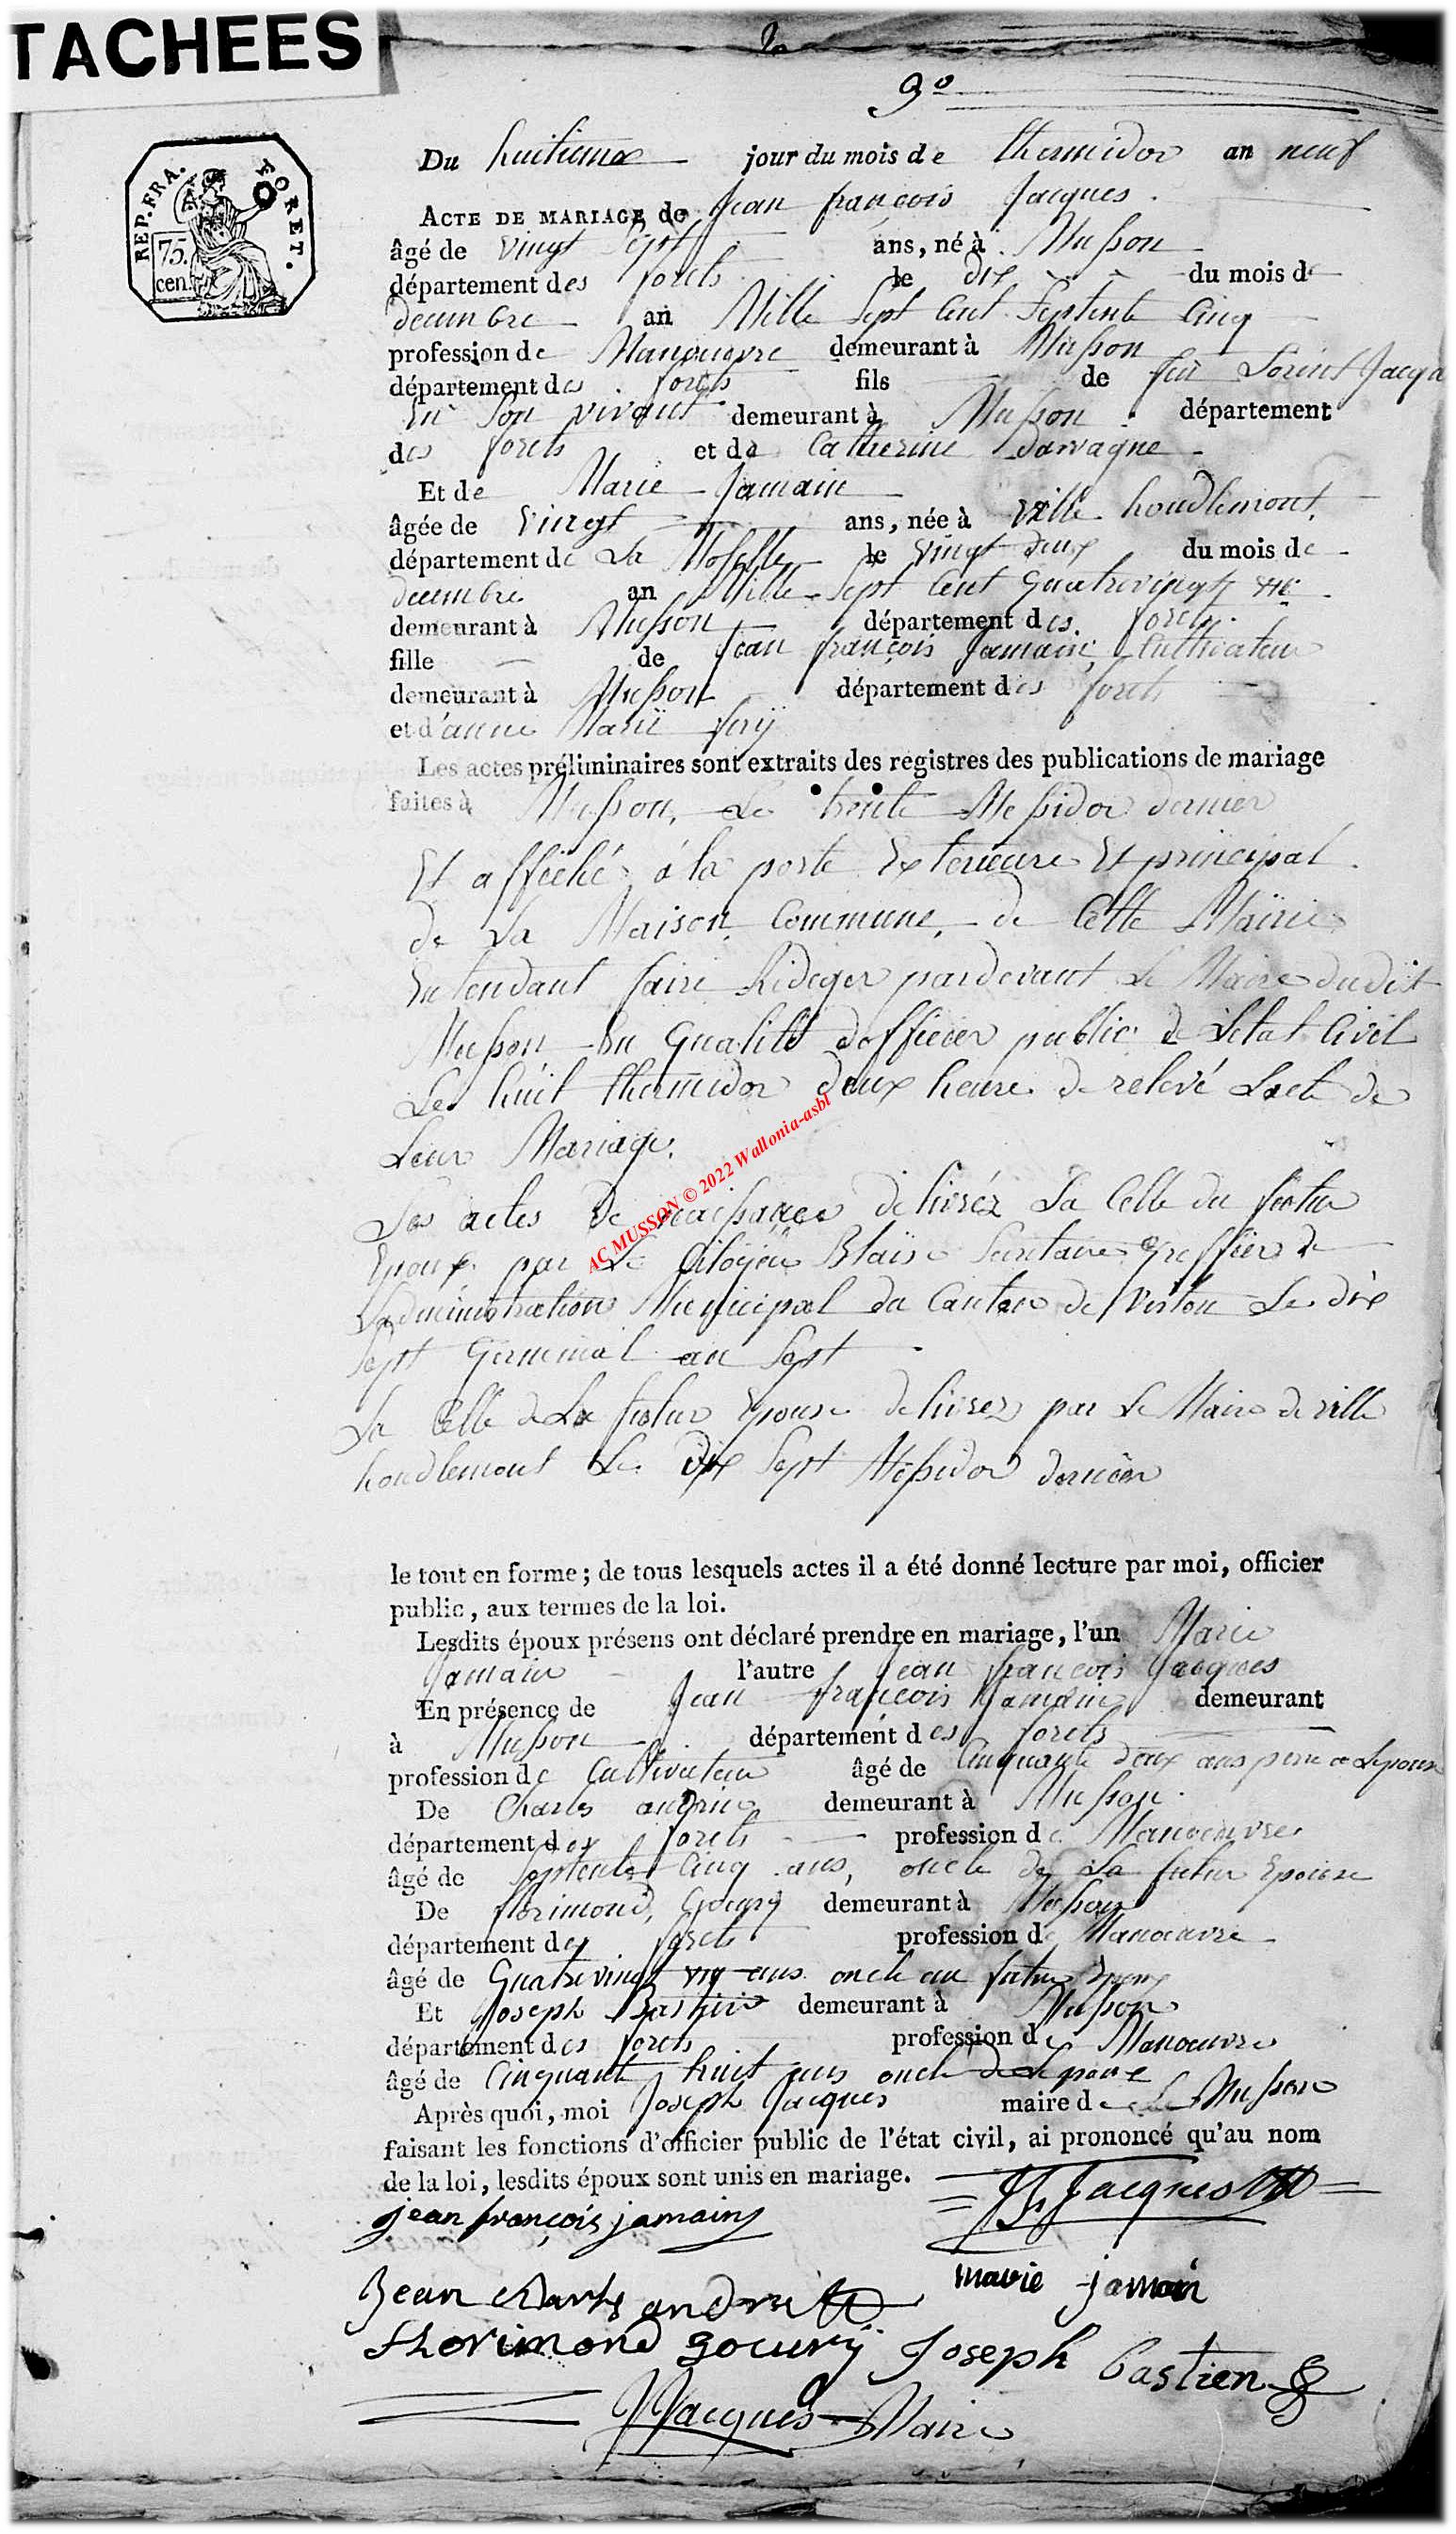 TACHEES
9º
REP. FRA. FORET.
75. cen.
Du huitieme jour du mois de thermidor an neuf
ACTE DE MARIAGE de Jean françois Jacques
âgé de vingt Sept ans, né à Musson
département des forets le dix du mois de
decembre an Mille Sept Cent Septente Cinq
profession de Manoeuvre demeurant à Musson
département des forets fils de feu Jacq
En Son vivant demeurant à Musson département
des forets et de Catherine
Et de Marie Jamain
âgée de vingt ans, née à ville houdlemont
département de La Moselle le vingt deux du mois de
decembre an Mille Sept Cent Quatrevingt
demeurant à Musson département des forets
fille de Jean françois Jamain, Cultivateur
demeurant à Musson département des forets
et d'anne Marie
Les actes préliminaires sont extraits des registres des publications de mariage
faites à Musson, Le trente Messidor dernier
Et affiché á la porte Exterieure Et principal
de La Maison Commune, de Cette Mairie
Entendant faire Rediger pardevant Le Maire dudit
Musson En Qualité dofficier public de Letat Civil
Le huit thermidor deux heure de relevé Lacte de
Leur Mariage.
Les actes de naissance delivréz La Celle du futur
Epoux par Le Citoÿen Blaise Secretaire Greffier de
Ladministration Municipal du Canton de Virton Le dix
Sept Germinal an Sept
La Celle de La futur Epouse delivrez par Le Maire de ville
houdlemont Le dix Sept Messidor dernier
AC MUSSON © 2022 Wallonia-asbl
le tout en forme ; de tous lesquels actes il a été donné lecture par moi, officier
public, aux termes de la loi.
Lesdits époux présens ont déclaré prendre en mariage, l'un Marie
Jamain l'autre Jean françois Jacques
En présence de Jean françois Jamain demeurant
à Musson département des forets
profession de Cultivateur âgé de Cinquante deux ans pere a Lepouse
De Charles demeurant à Musson
département des forets profession de Manoeuvre
âgé de Septente Cinq ans, oncle de La futur Epouse
De florimond, Goury demeurant à Musson
département des forets profession de Manoeuvre
âgé de Quatrevingt ans oncle au futur Epoux
Et Joseph Bastien demeurant à Musson
département des forets profession de Manoeuvre
âgé de Cinquante huit ans oncle de Lepouse
Après quoi, moi Joseph Jacques maire de Musson
faisant les fonctions d'officier public de l'état civil, ai prononcé qu'au nom
de la loi, lesdits époux sont unis en mariage.
Jacques
jean françois jamain
marie jamain
Jean charles
florimond gourÿ Joseph bastien
Jacques Maire